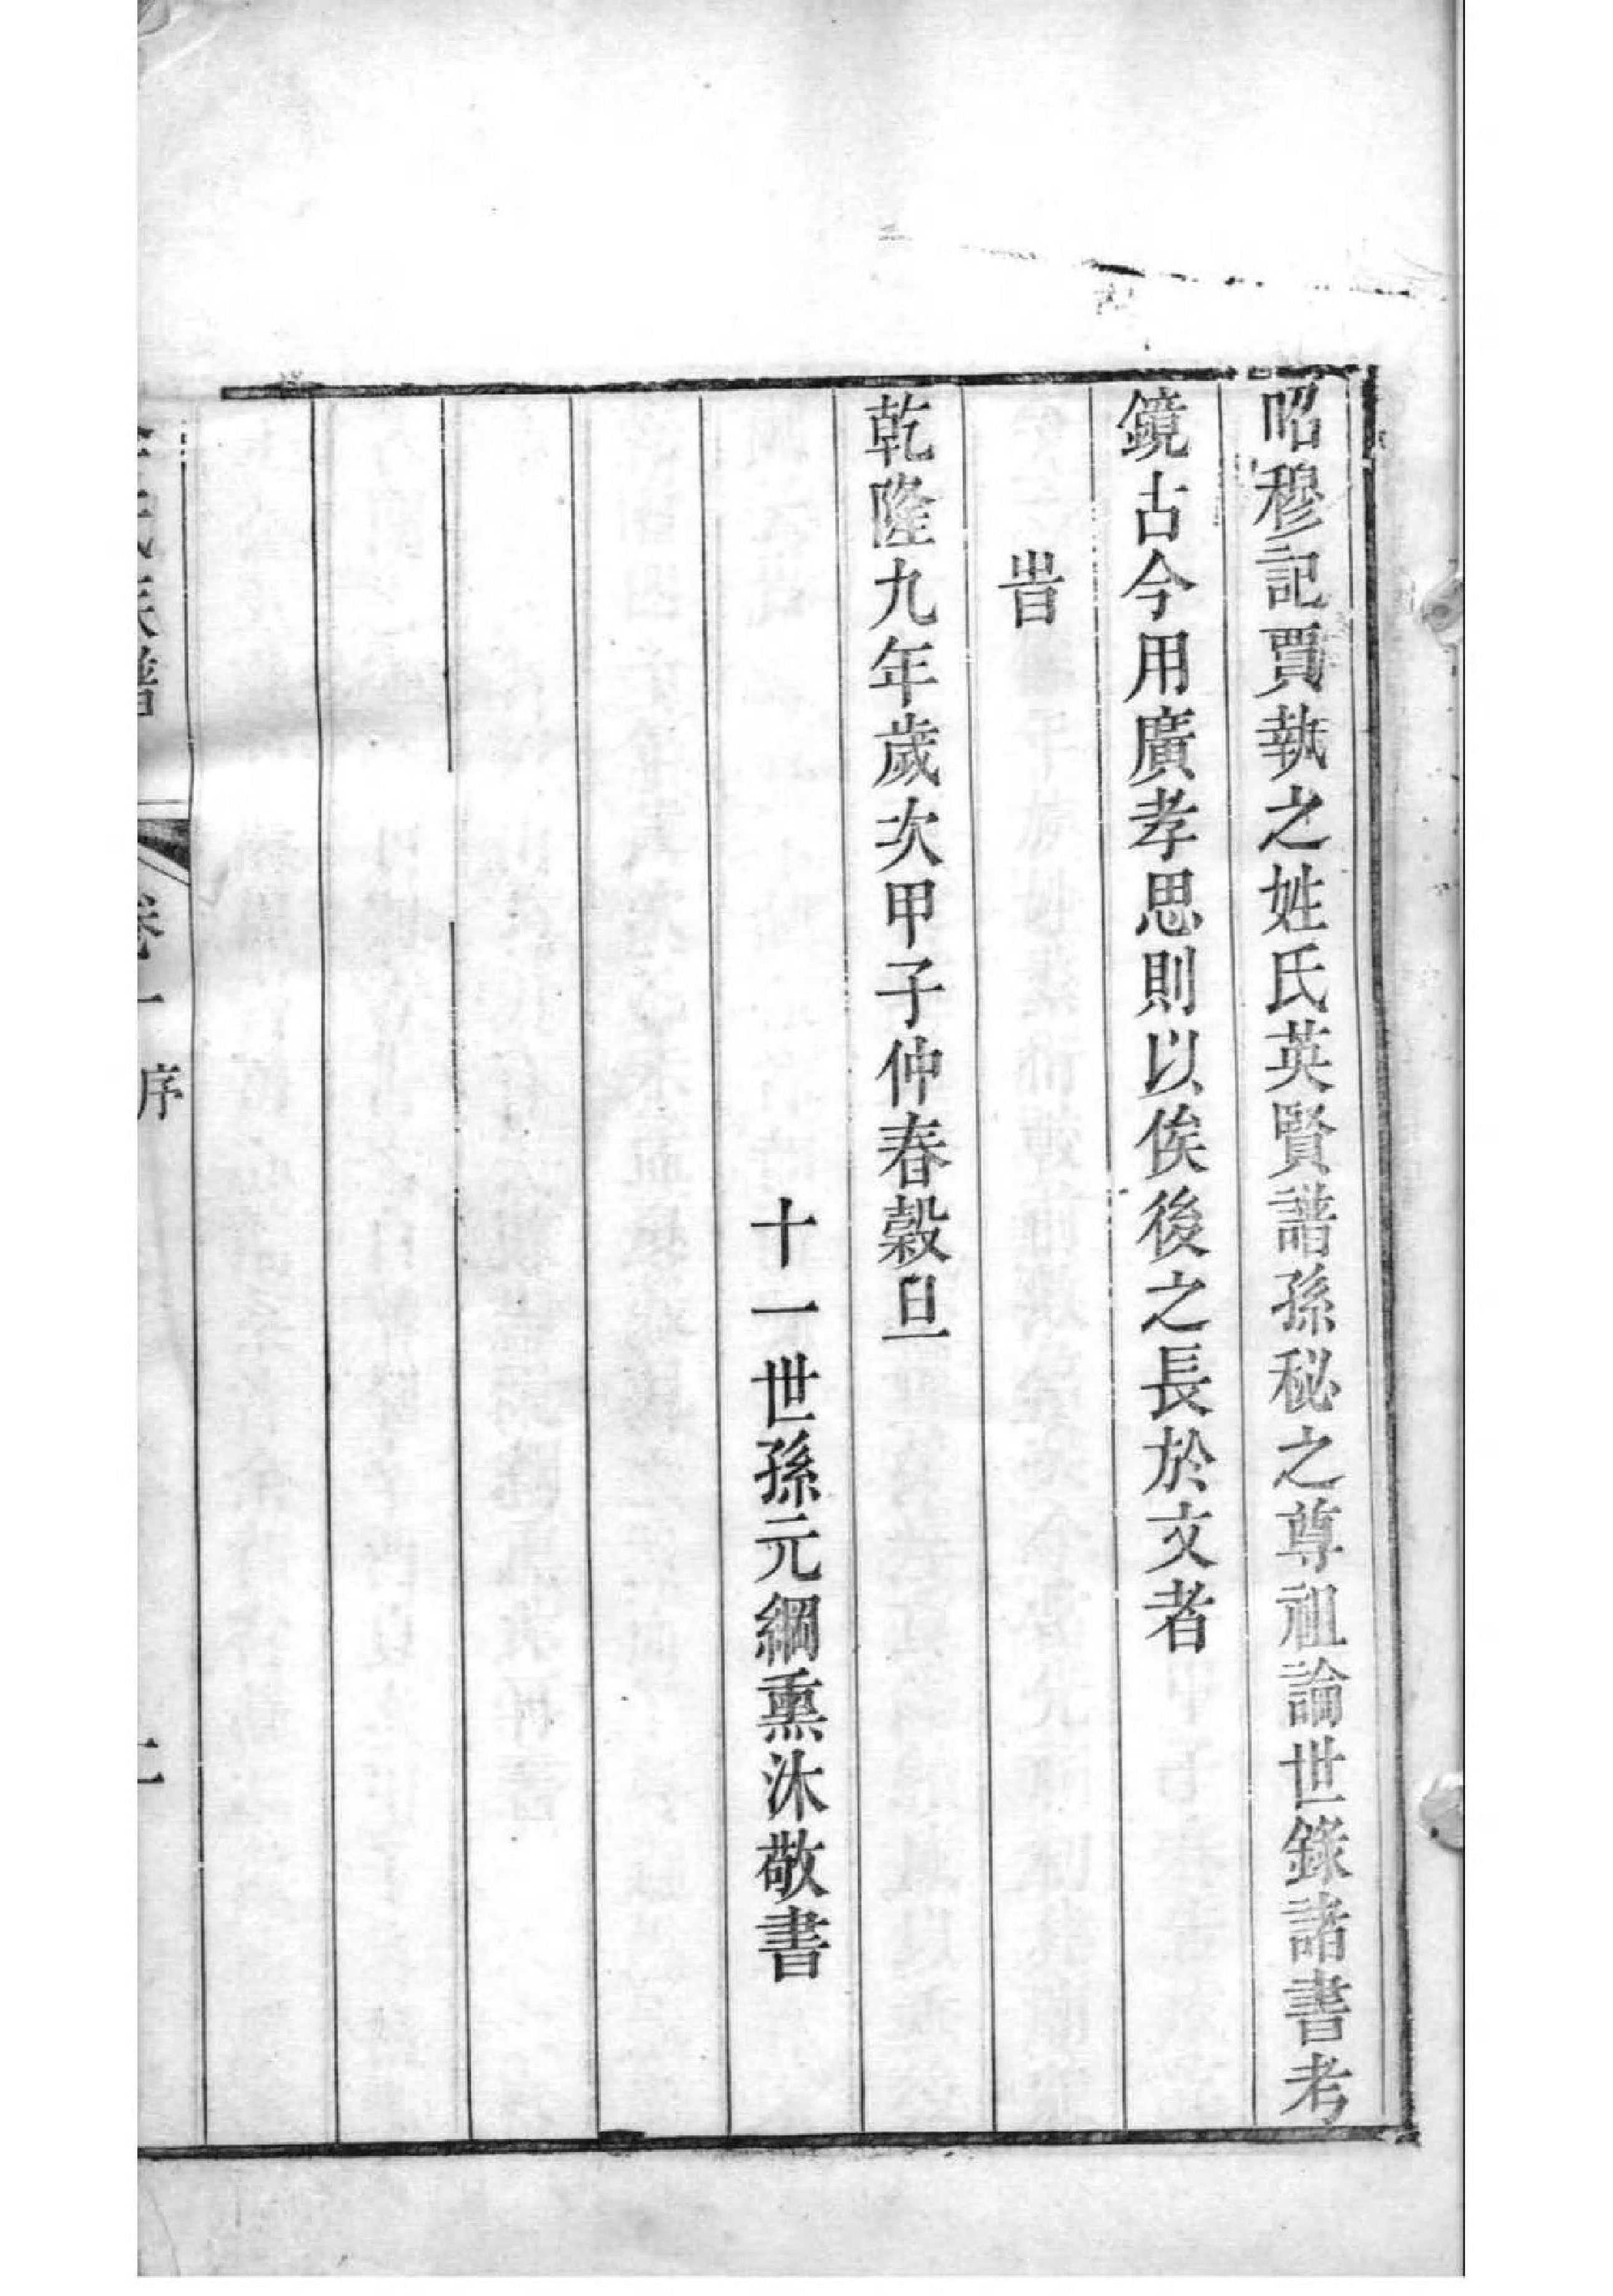 昭穆記賈執之姓氏英賢譜孫秘之尊祖論世錄諸書考
鏡古今用廣孝思則以俟後之長於文者
旹
乾隆九年歲次甲子仲春穀旦
十一世孫元綱熏沐敬書
氏族譜
卷一
序
二